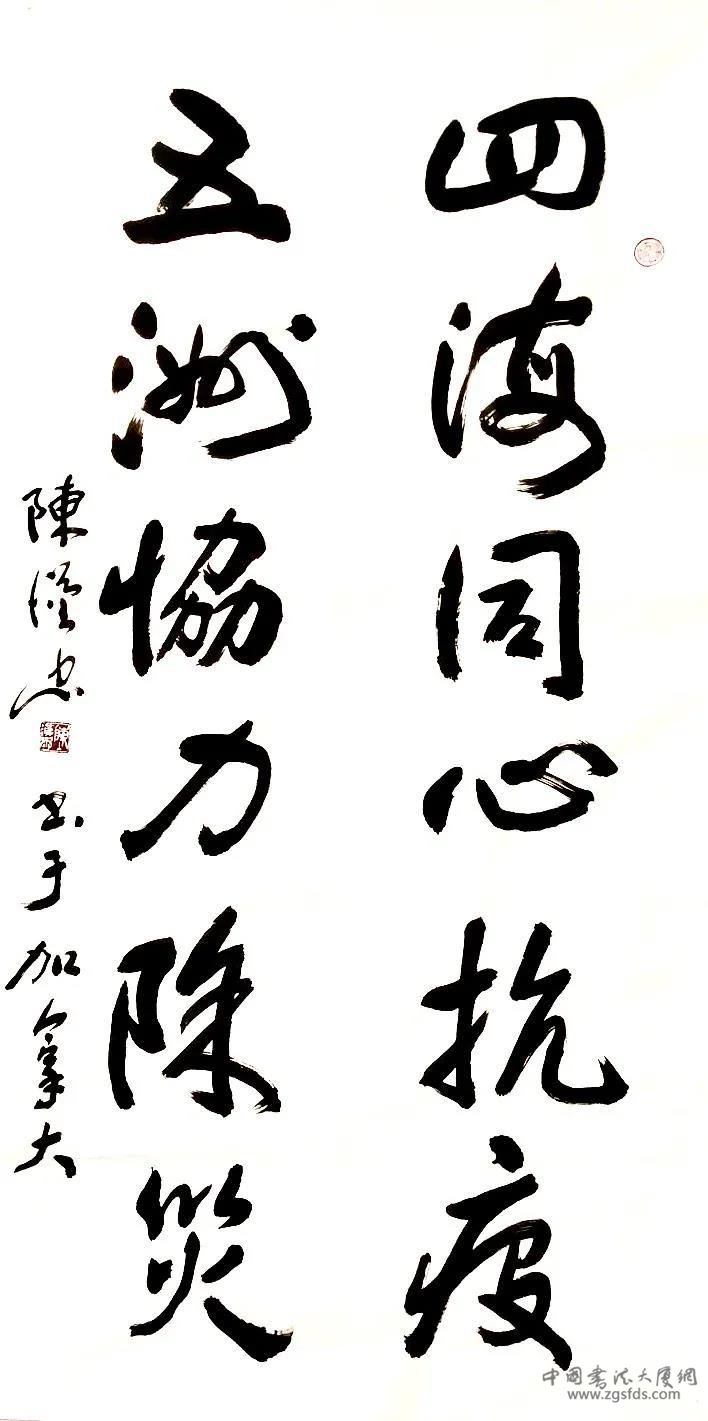 四海同心抗疫
五洲恊力除災
陳忠 书于加拿大
中國書法大廈網
www.zgsfds.com